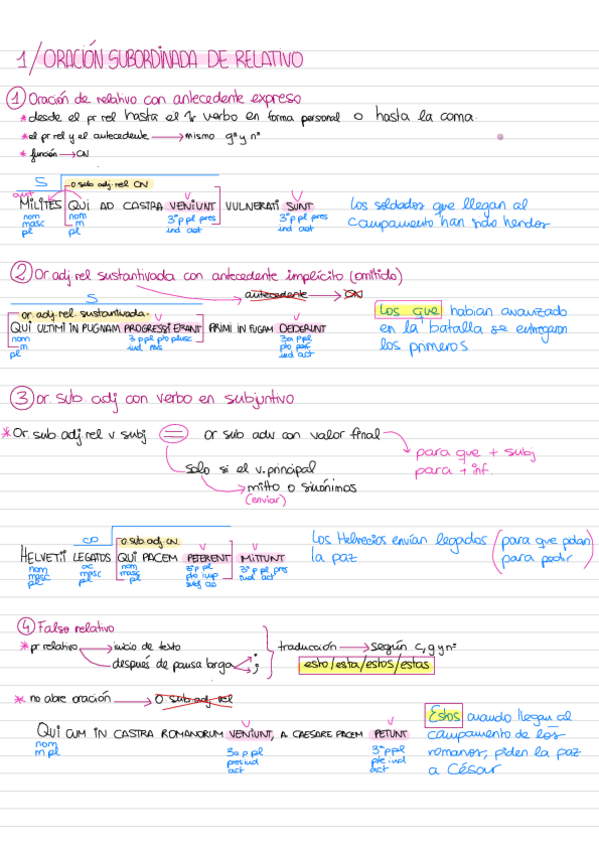 1/ ORACIÓN SUBORDINADA DE RELATIVO
① Oración de relativo con antecedente expreso
* desde el pr rel hasta el 1r verbo en forma personal o hasta la coma.
* el pr rel y el antecedente → mismo gº y nº
* función → CN
S o sub adj. rel CN
MILITES QUI AD CASTRA VENIUNT VULNERATI SUNT
nom masc pl
nom m pl
3ª p pl pres ind act
3ª p pl pres ind act
Los soldados que llegan al
campamento han sido heridos
② Or. adj. rel sustantivada con antecedente implícito (omitido)
antecedente → CN
S
or adj. rel. sustantivada.
QUI ULTIMI IN PUGNAM PROGRESSI ERANT PRIMI IN FUGAM DEDERUNT
nom m pl
3 p pl pto plusc ind
3a p pl pto perf ind act
Los que habían avanzado
en la batalla se entregaron
los primeros
③ or. sub. adj con verbo en subjuntivo
* Or. sub adj rel v subj = or sub adv con valor final
para que + subj
para + inf.
solo si el v. principal
mitto o sinónimos
(enviar)
CD o sub adj. CN
HELVETII LEGATOS QUI PACEM PETERENT MITTUNT
nom masc pl
ac masc pl
nom masc pl
3ª p pl pto imp subj ac
3ª p pl pres ind act
Los Helvecios envían legados (para que pidan)
la paz (para pedir)
④ Falso relativo
* pr relativo → inicio de texto
después de pausa larga . ;
traducción → según c, g y nº
esto/esta/estos/estas
* no abre oración → O sub adj rel
QUI CUM IN CASTRA ROMANORUM VENIUNT, A CAESARE PACEM PETUNT
nom m pl
3a p pl pres ind act
3ª p pl pte ind act
Estos cuando llegan al
campamento de los
romanos, piden la paz
a César